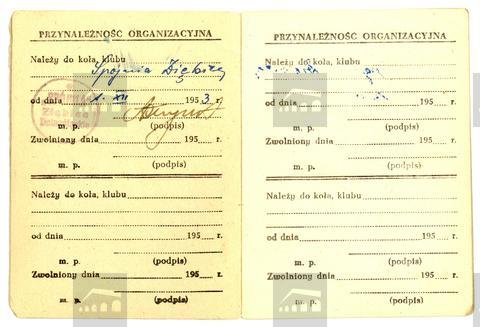 PRZYNALEŻNOŚĆ ORGANIZACYJNA
Należy do koła, klubu
Spójnia Ziębice
od dnia 1. XII 1953 r.
m. p. (podpis)
Zwolniony dnia 195 r.
m. p. (podpis)
Należy do koła, klubu
od dnia 195 r.
m. p. (podpis)
Zwolniony dnia 195 r.
m. p. (podpis)
PRZYNALEŻNOŚĆ ORGANIZACYJNA
Należy do koła, klubu
od dnia 195 r.
m. p. (podpis)
Zwolniony dnia 195 r.
m. p. (podpis)
Należy do koła, klubu
od dnia 195 r.
m. p. (podpis)
Zwolniony dnia 195 r.
m. p. (podpis)